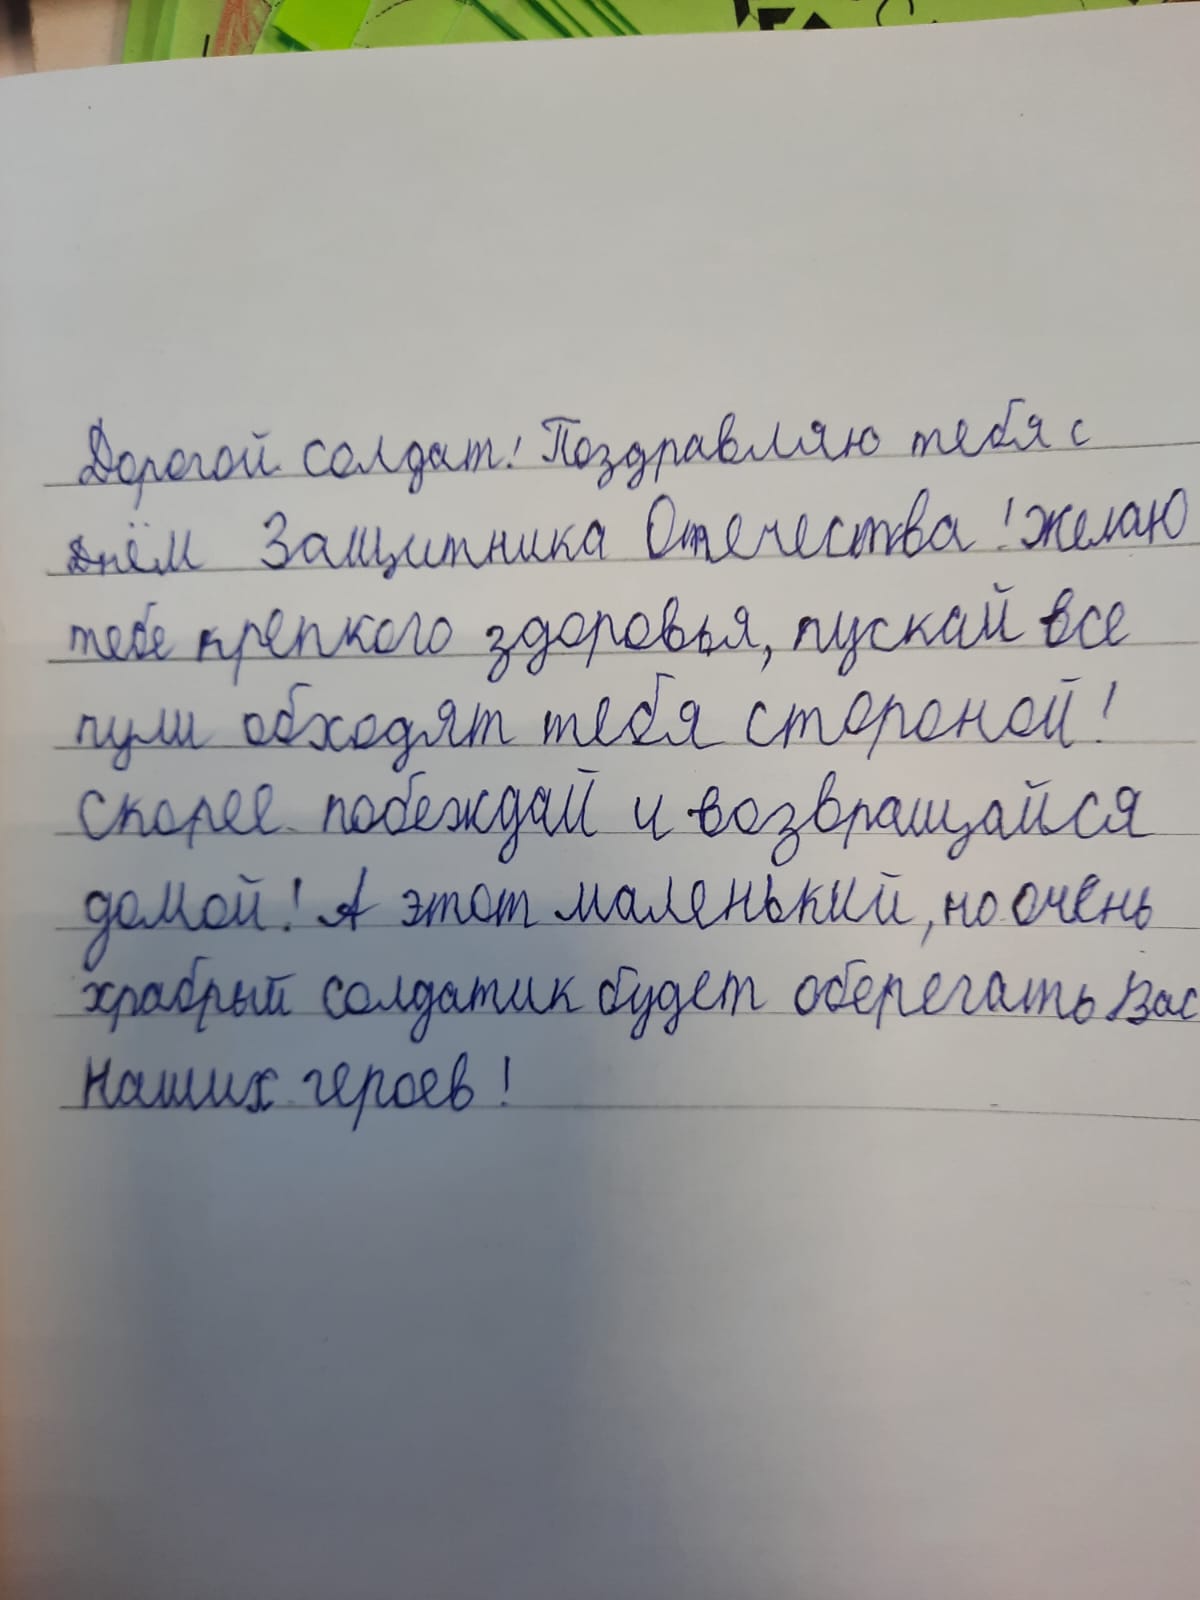 Дорогой солдат! Поздравляю тебя с
Днём Защитника Отечества! Желаю
тебе крепкого здоровья, пускай все
пули обходят тебя стороной!
Скорее побеждай и возвращайся
домой! А этот маленький, но очень
храбрый солдатик будет оберегать Вас
наших героев!